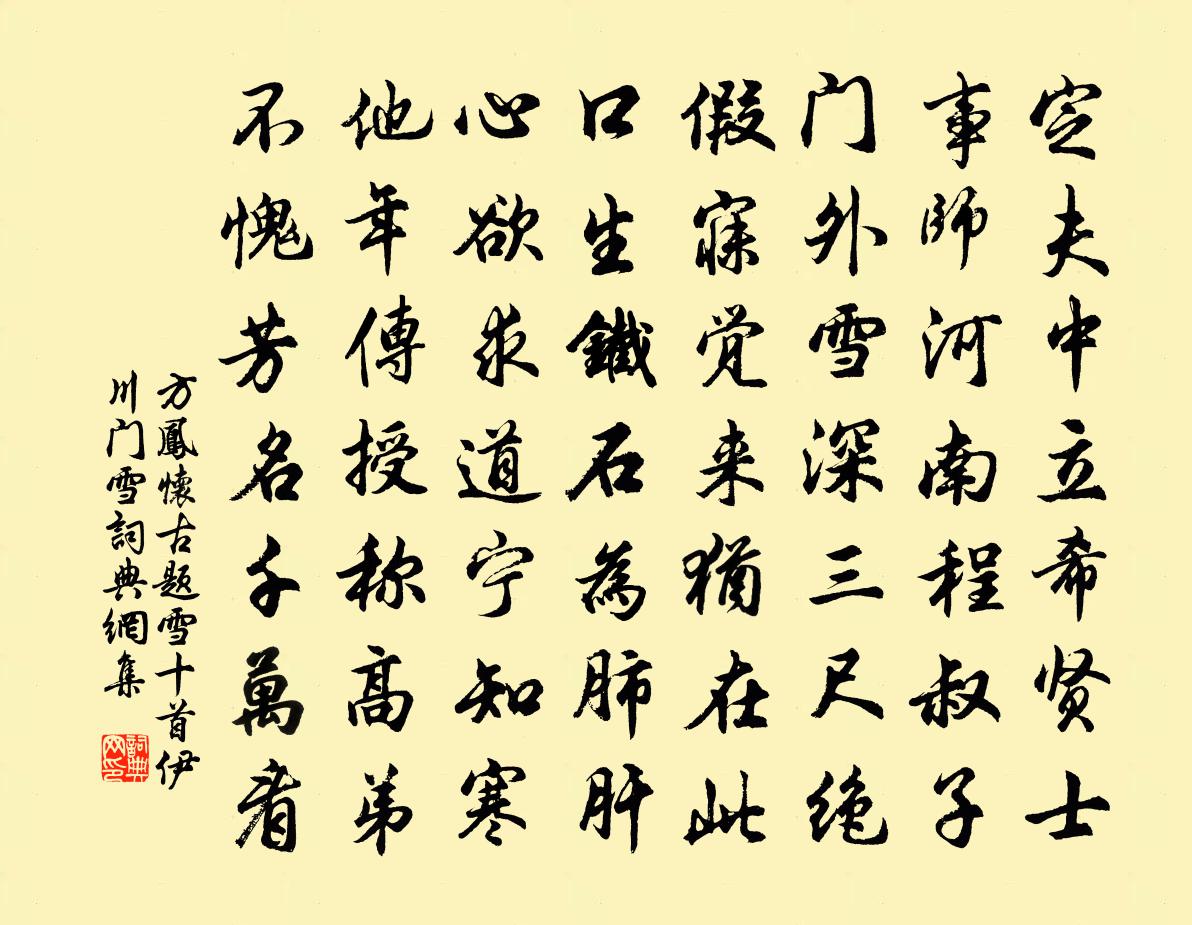 定夫中立希贤士
事師河南程叔子
门外雪深三尺绝
假寐觉来猶在此
口生鐵石為肺肝
心欲求道宁知寒
他年傳授称高弟
不愧芳名千萬看
方鳳懷古题雪十首伊
川门雪詞典網集
詞典
网印